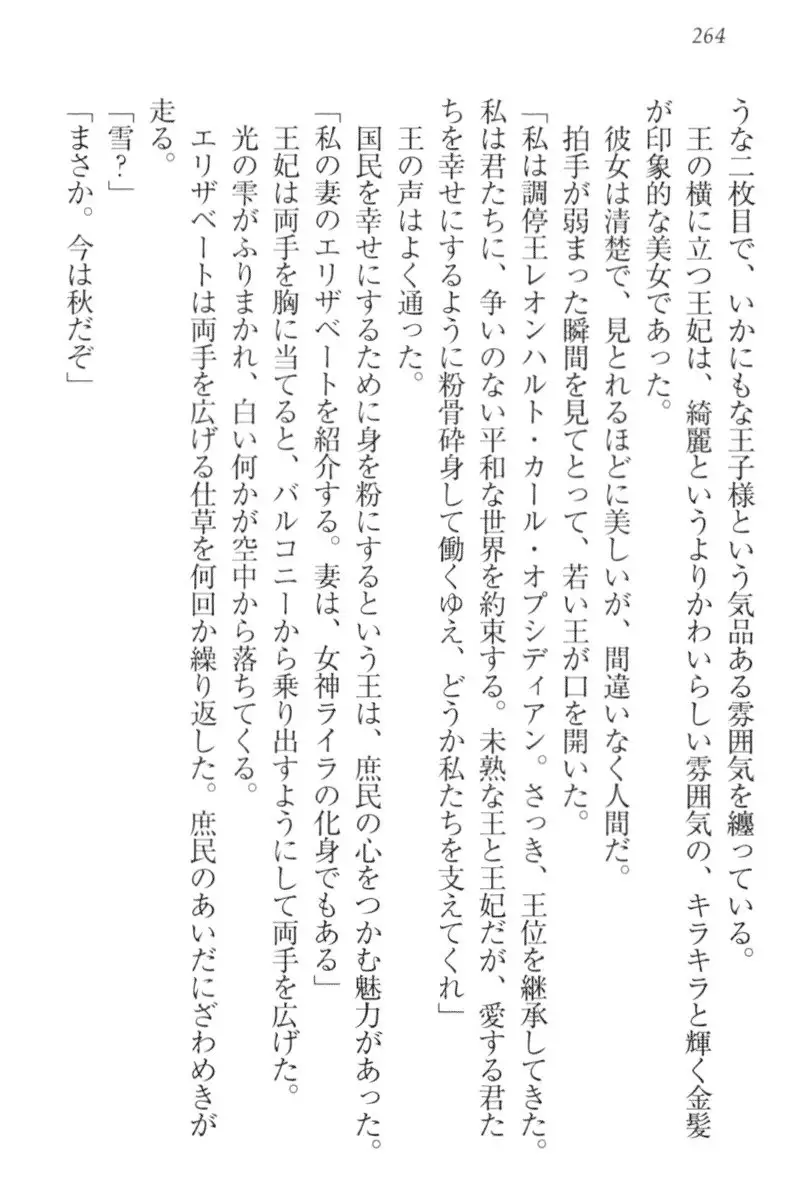 264
うな二枚目で、いかにもな王子様という気品ある雰囲気を纏っている。
王の横に立つ王妃は、綺麗というよりかわいらしい雰囲気の、キラキラと輝く金髪
が印象的な美女であった。
彼女は清楚で、見とれるほどに美しいが、間違いなく人間だ。
拍手が弱まった瞬間を見てとって、若い王が口を開いた。
「私は調停王レオンハルト・カール・オプシディアン。さっき、王位を継承してきた。
私は君たちに、争いのない平和な世界を約束する。未熟な王と王妃だが、愛する君た
ちを幸せにするように粉骨砕身して働くゆえ、どうか私たちを支えてくれ」
王の声はよく通った。
国民を幸せにするために身を粉にするという王は、庶民の心をつかむ魅力があった。
「私の妻のエリザベートを紹介する。妻は、女神ライラの化身でもある」
王妃は両手を胸に当てると、バルコニーから乗り出すようにして両手を広げた。
光の雫がふりまかれ、白い何かが空中から落ちてくる。
エリザベートは両手を広げる仕草を何回か繰り返した。庶民のあいだにざわめきが
走る。
「雪？」
「まさか。今は秋だぞ」